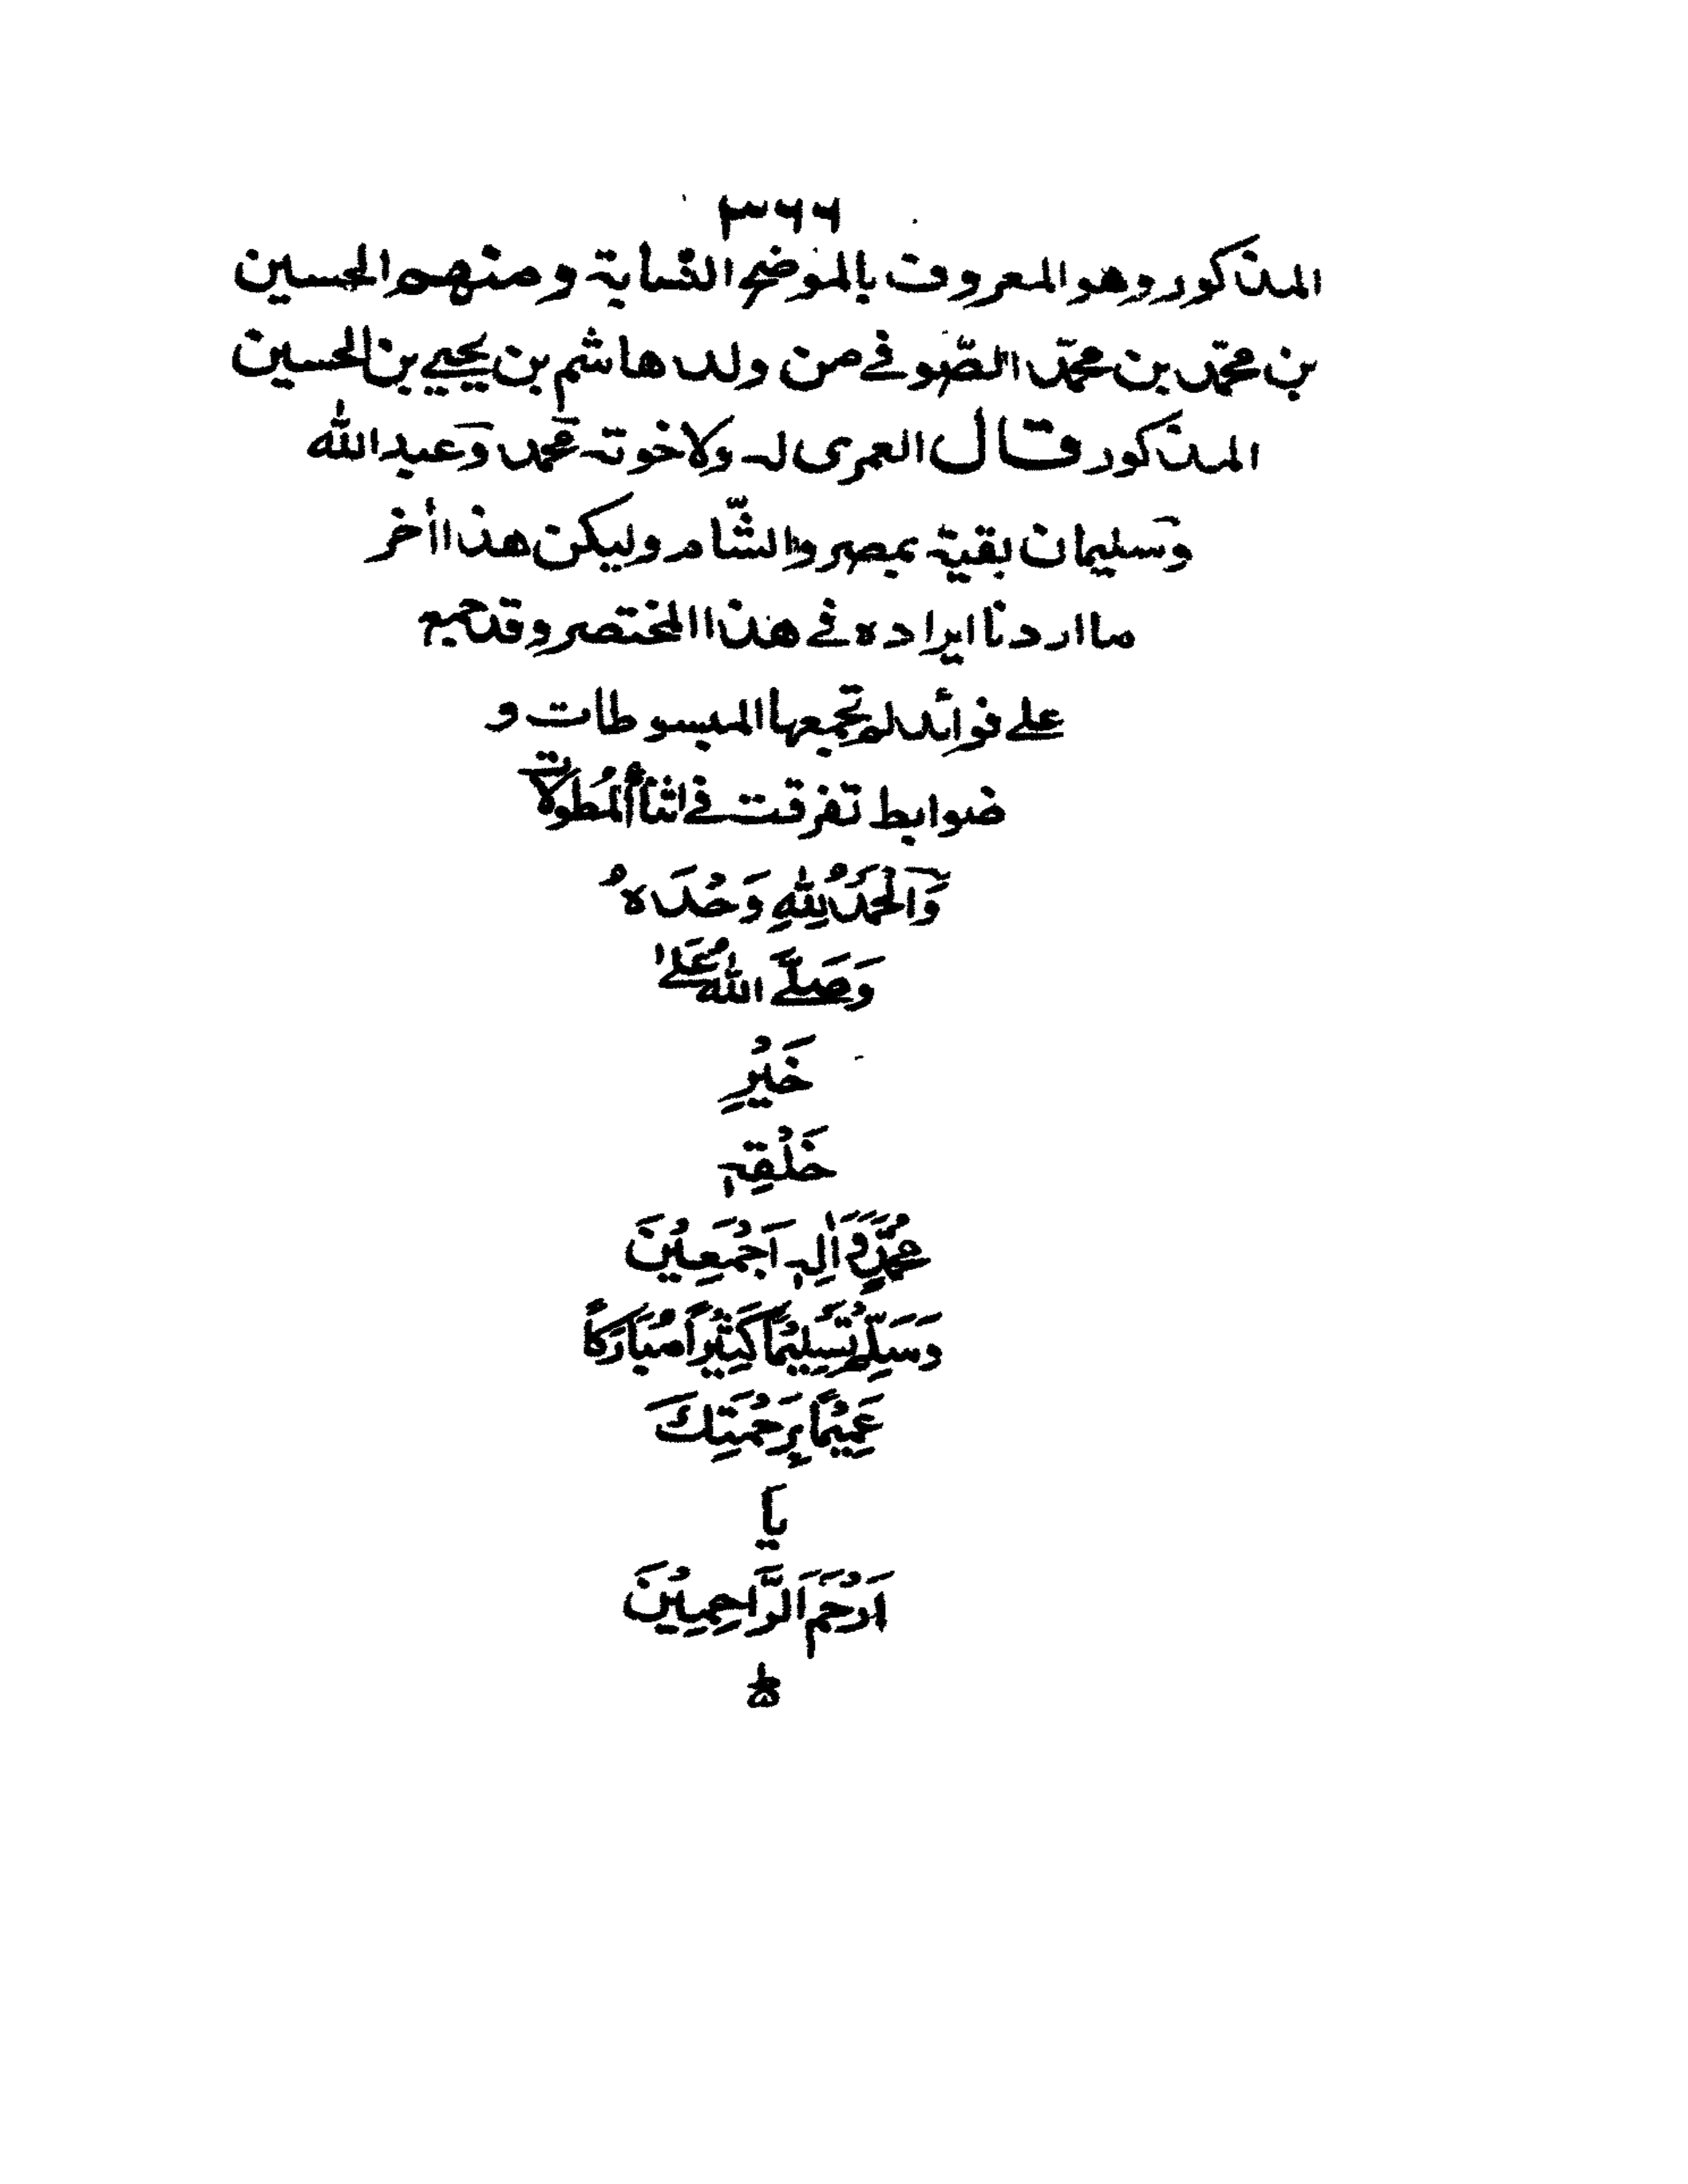 ٣٦٦
المذكور وهو المعروف بالموضح النسابة ومنهم الحسين
بن محمّد بن محمّد الصّوفي من ولد هاشم بن يحيي بن الحسين
المذكور قال العمرى له ولاخوته محمد وعبد الله
وسليمان بقية بمصر والشّام وليكن هذا اٰخر
ما اردنا ايراده في هذا المختصر وقد جمع
على فوائد لم تجمعها المبسوطات و
ضوابط تفرقت في اثناء المُطولات
وَالْحَمْدُ لِلّٰهِ وَحْدَهُ
وَصَلَّے اللّٰهُ عَلےٰ
خَيْرِ
خَلْقِهٖ
مُحَمَّدٍ وَّاٰلِهٖ اَجْمَعِيْنَ
وَسَلَّمَ تَسْلِيْمًا كَثِيْرًا مُبَارَكًا
عَمِيْمًا بِرَحْمَتِكَ
يَا
اَرْحَمَ الرَّاحِمِيْنَ